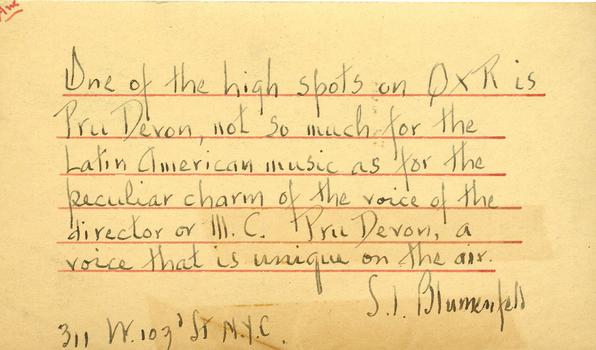 One of the high spots on QXR is
Pru Devon, not so much for the
Latin American music as for the
peculiar charm of the voice of the
director or M.C. Pru Devon, a
voice that is unique on the air.
S. I. Blumenfeld
311 W. 103d St N.Y.C.